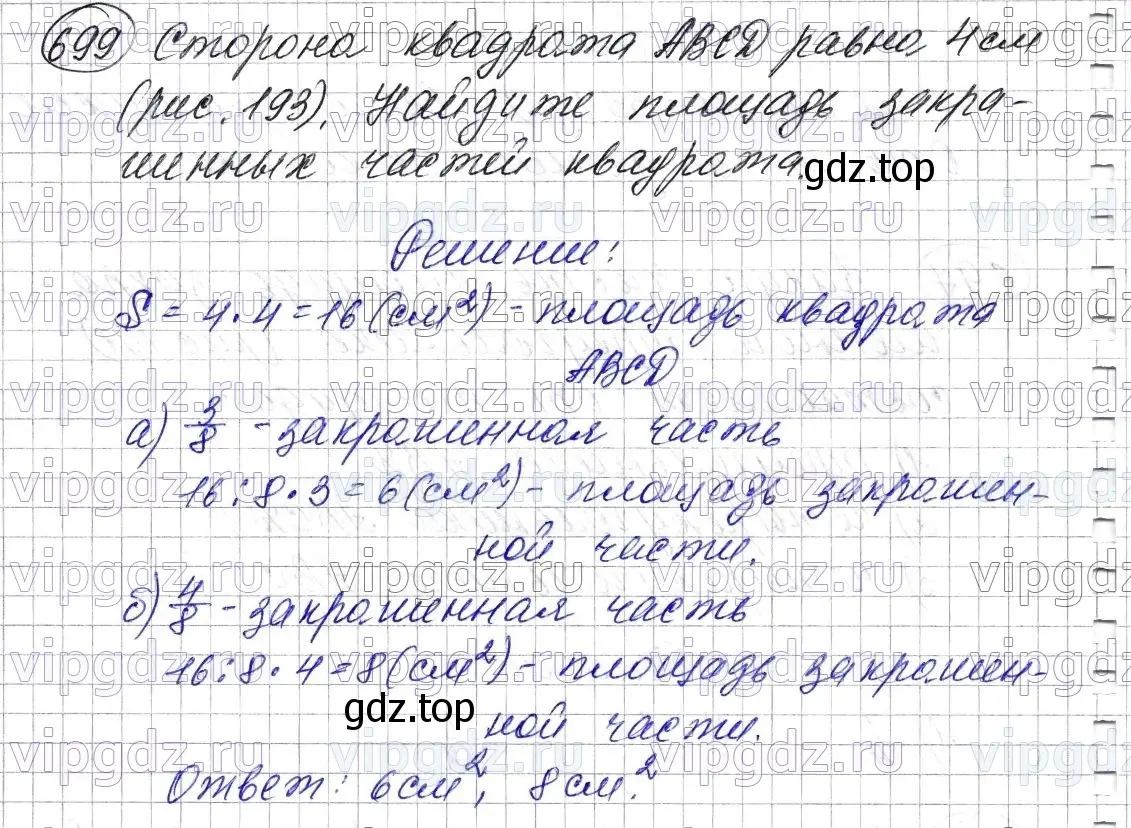 699 Сторона квадрата ABCD равна 4 см
(рис. 193). Найдите площадь закра-
шенных частей квадрата.
gdz.top
Решение:
S = 4 · 4 = 16 (см²) - площадь квадрата
ABCD
а) 3/8 - закрашенная часть
16 : 8 · 3 = 6 (см²) - площадь закрашен-
ной части.
б) 4/8 - закрашенная часть
16 : 8 · 4 = 8 (см²) - площадь закрашен-
gdz.top
ной части.
Ответ: 6 см², 8 см².
vipgdz.ru